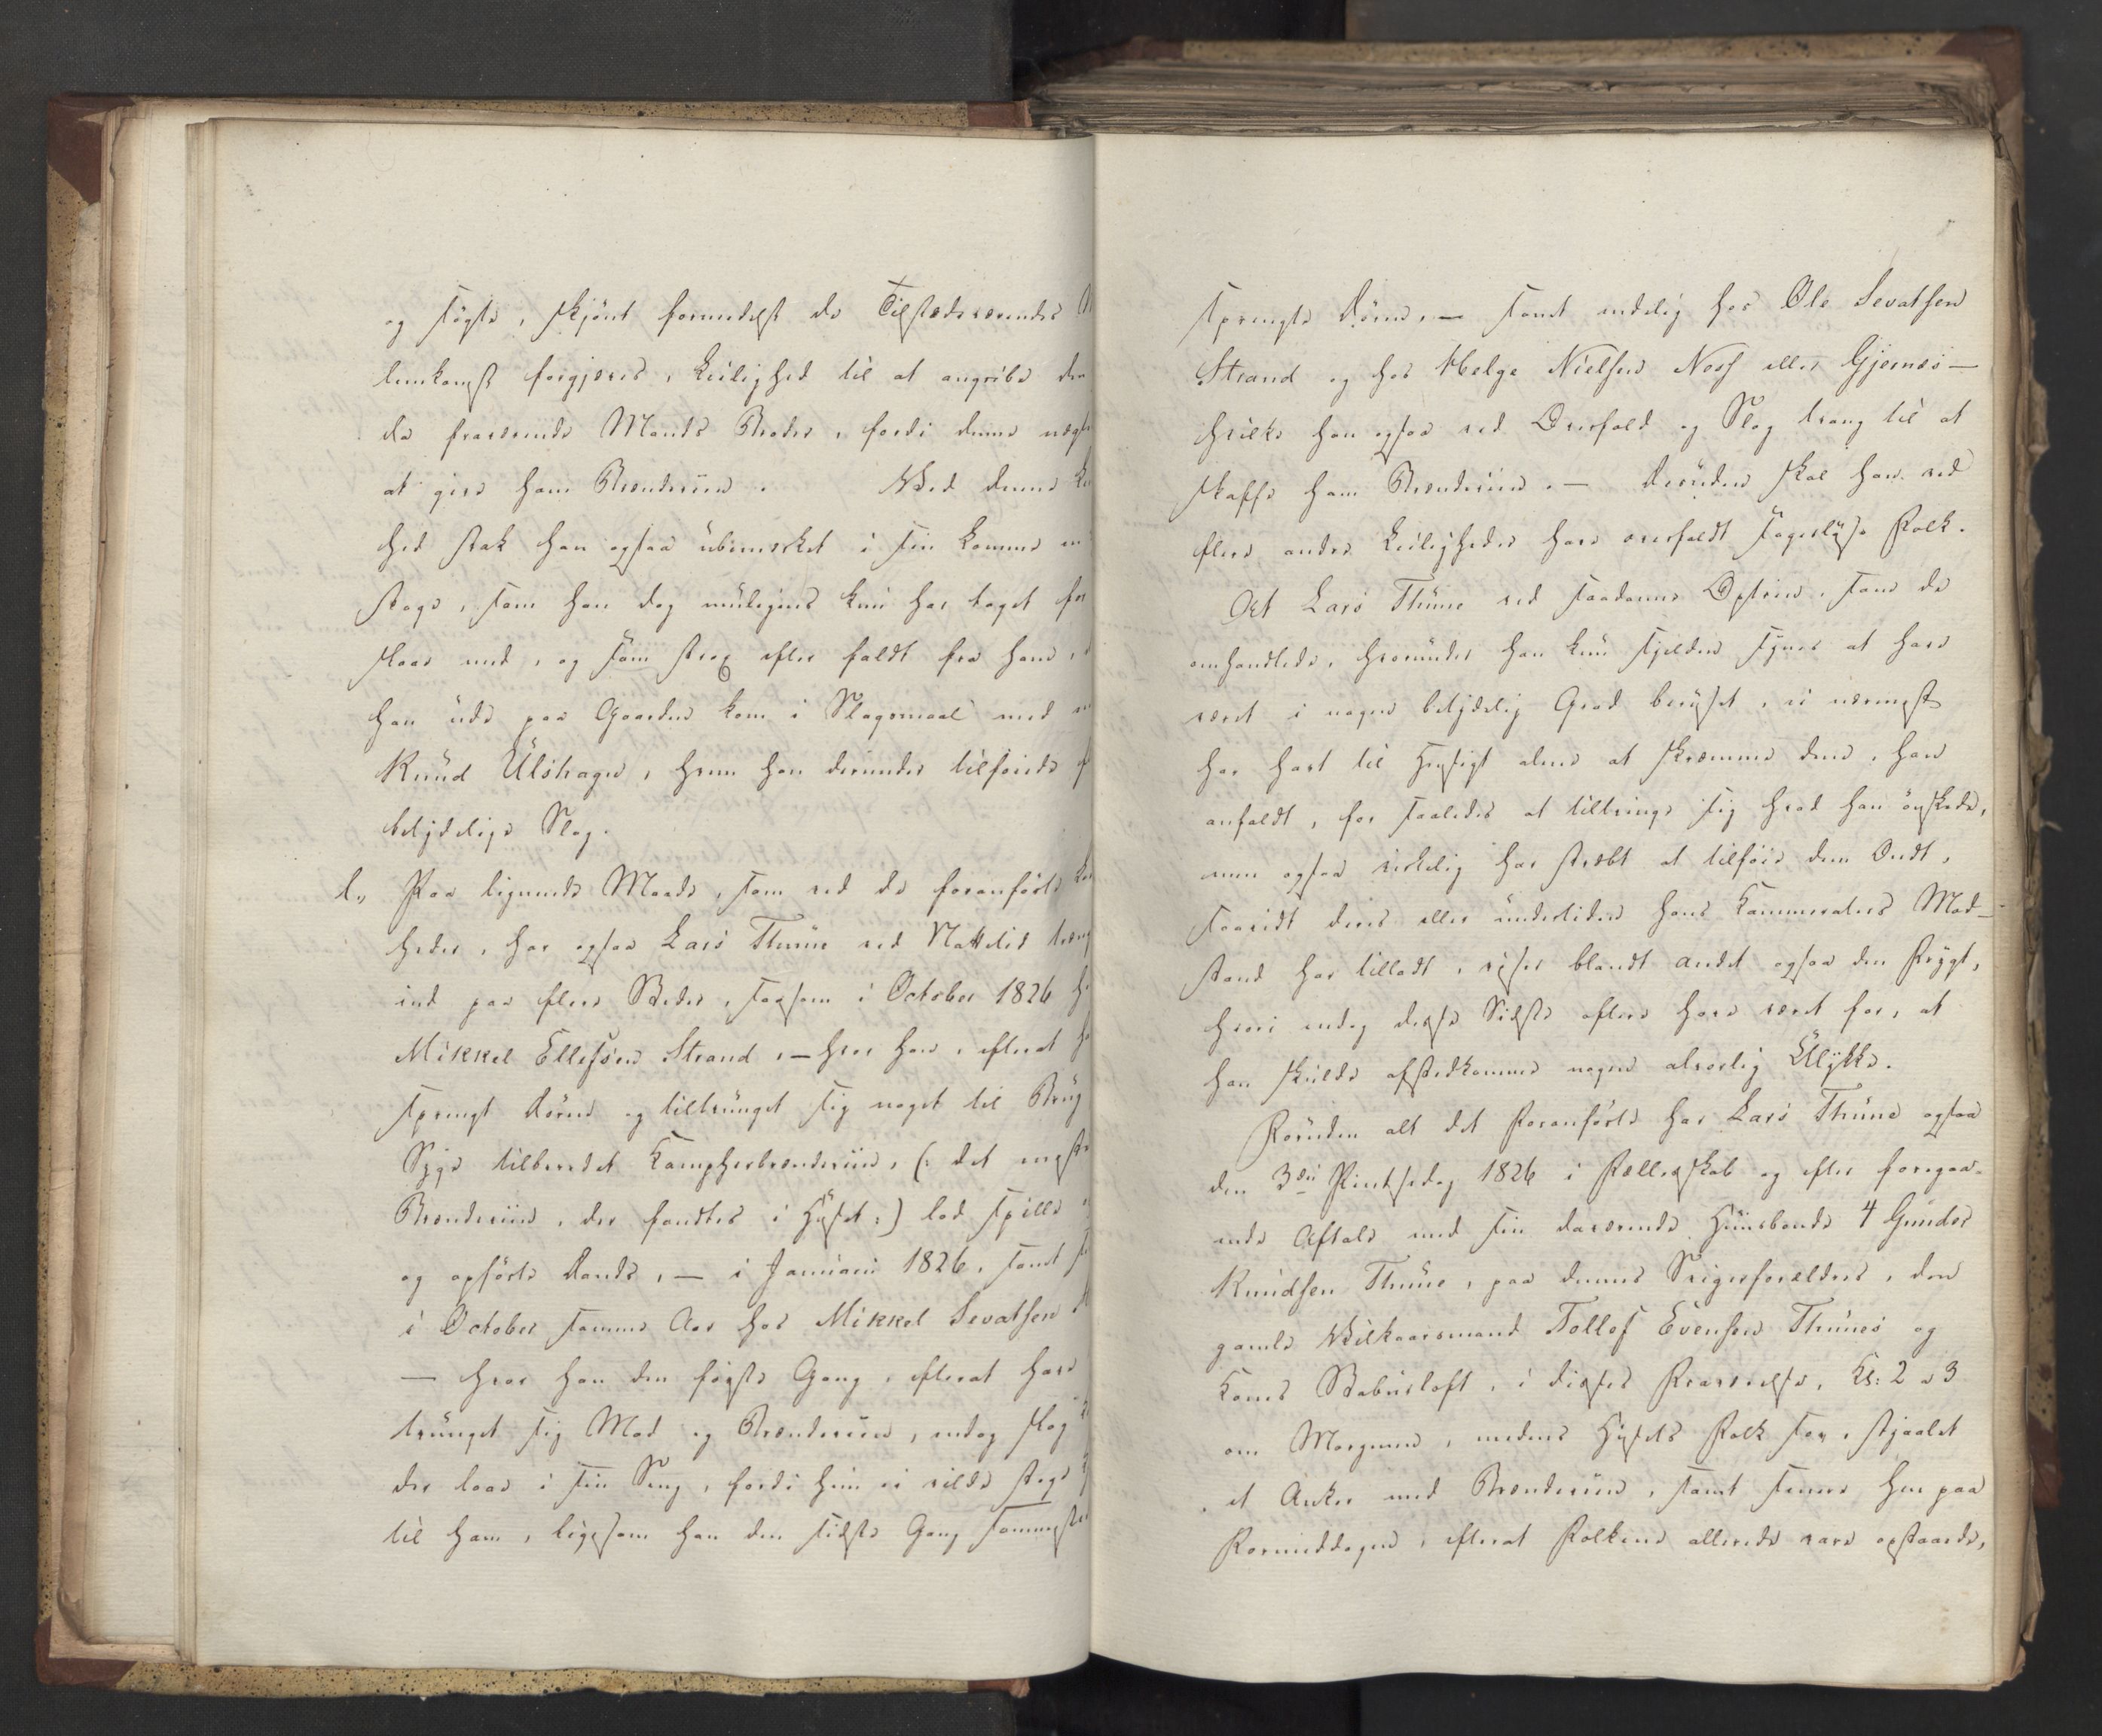 og søgte, skjönt formedelst de Tilstedeværendes
lemkomst forgjeves, Leilighed til at angribe den
da fraværende Mands Broder, fordi denne nægte
at give ham Brændeviin. Ved denne
hed stak han ogsaa ubemerket i sin Lomme en
Stage, som han dog muligens kun har taget for
slaae med, og som strax efter faldt fra ham,
han ude paa Gaarden kom i Slagsmaal med
Knud Ulshagen, hvem han derunder tilføiede
betydelige Slag.
l., Paa lignende Maade, som ved de foranførte
heder, har ogsaa Lars Thune ved Nattetid
ind paa flere Steder, saasom i October 1826
Mikkel Ellefsen Strand, – hvor han, efterat
sprengt Døren og tiltrunget sig noget til Brug
Syge tilberedet Kampherbrændeviin, (: det eneste
Brændeviin, der fandtes i Huset :) lod spille
og opførte Dands, – i Januarii 1826, samt
i October samme Aar hos Mikkel Sevatsen
– hvor han den første Gang, efterat have
trunget sig Mad og Brændeviin, endog slog
der laae i sin Seng, fordi hun ei vilde staae
til ham, ligesom han den sidste Gang sammesteds
sprengte Døren, – samt endelig hos Ole Sevatsen
Strand og hos Helge Nielsen Noss eller Gjernes –
hvilke han ogsaa ved Overfald og Slag tvang til at
skaffe ham Brændeviin. – Desuden skal han ved
flere andre Leiligheder have overfaldt sagesløse Folk.
At Lars Thune ved saadanne Optrin, som de
omhandlede, hvorunder han kun sjelden synes at have
været i nogen betydelig Grad beruset, ei nærmest
har havt til Hensigt alene at skræmme dem, han
anfaldt, for saaledes at tiltvinge sig hvad han ønskede,
men ogsaa virkelig har stræbt at tilføie dem Ondt,
saavidt deres eller undertiden hans Kammeraters Mod-
stand har tilladt, viser blandt andet ogsaa den Frygt,
hvori endog disse Sidste oftere have været for, at
han skulde afstedkomme nogen alvorlig Ulykke.
Foruden alt det Foranførte har Lars Thune ogsaa
den 3die Pintsedag 1826 i Fælleskab og efter foregaa-
ende Aftale med sin daværende Huusbonde 4 Gunder
Knudsen Thune, paa dennes Svigerforældres, den
gamle Vilkaarsmand Tollef Evensen Thunes og
Kones Stabursloft, i disses Fraværelse, Kl: 2 a 3
om Morgenen, medens Husets Folk sov, stjaalet
et Anker med Brændeviin, samt senere hen paa
Formiddagen, efterat Folkene allerede vare opstaaede,